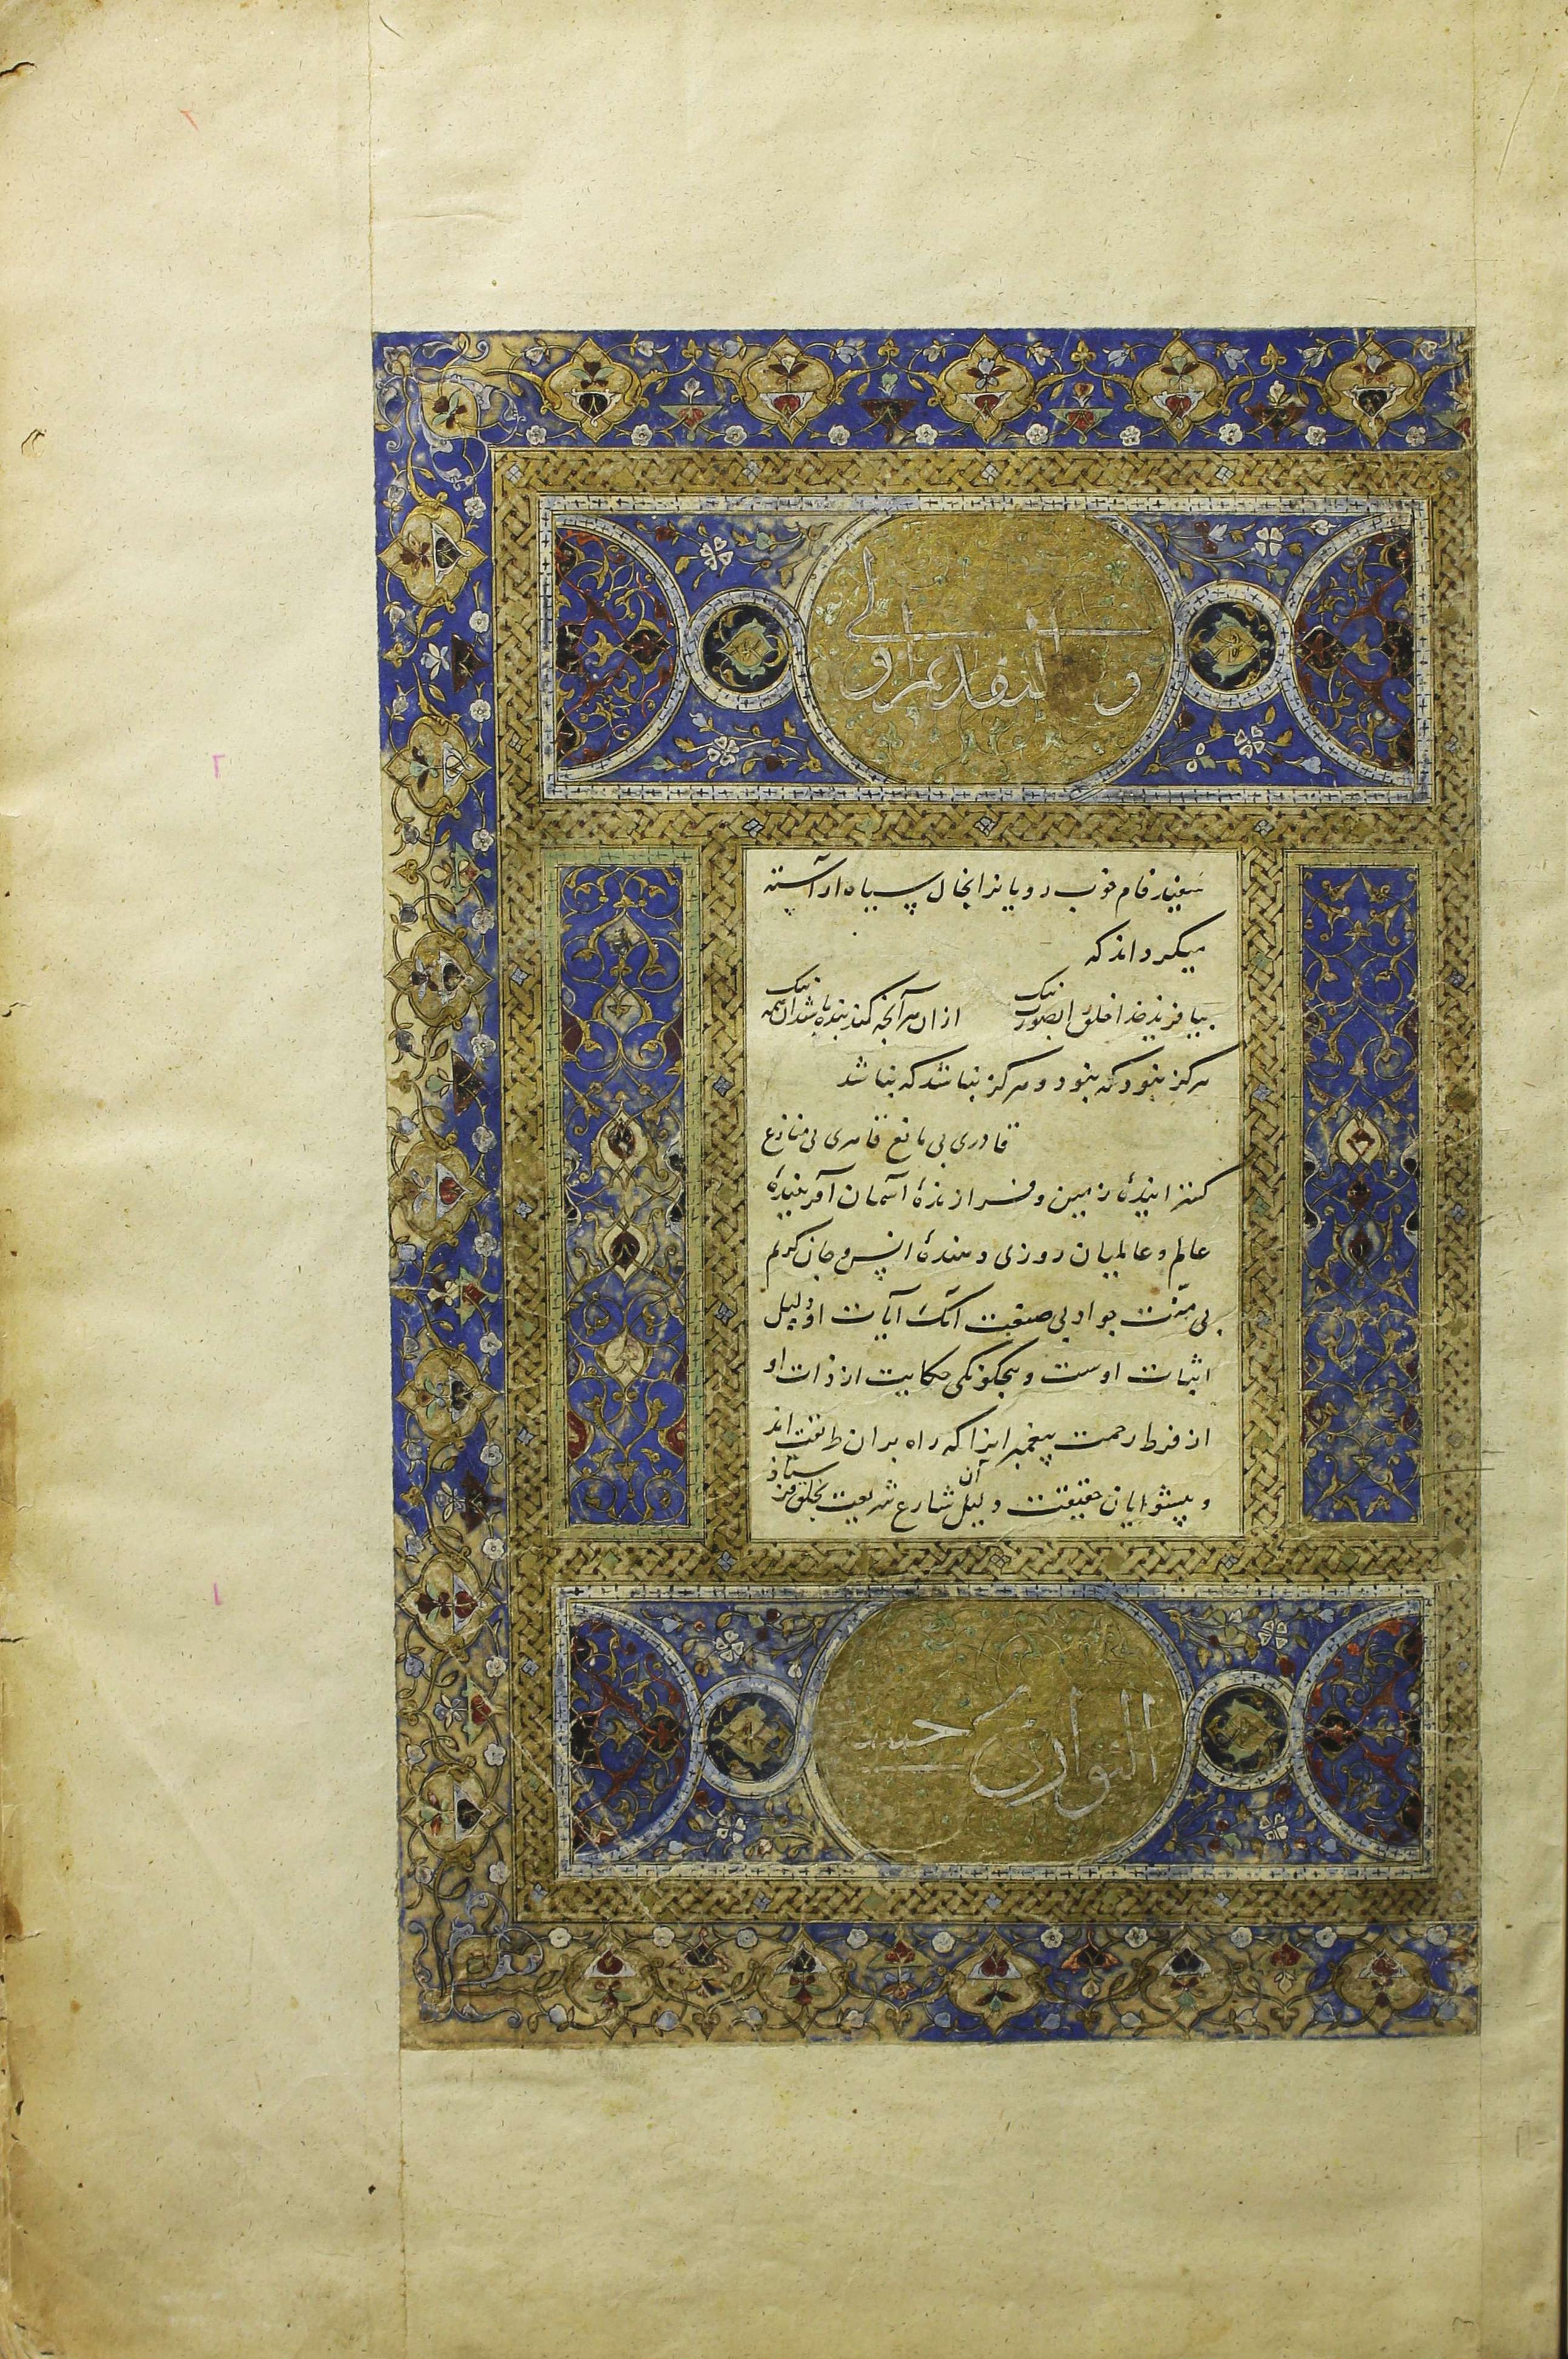 سفید فام خوب رویانرا بخال سیاه آراسته
میکرداند که
بیافریند خدا خلق را بصورت نیک از ان هر آنجه کند بنده باشد ان همه نیک
هرکز نبود که نبود و هرکز نباشد که نباشد
قادری بی مانع قاهری بی منازع
کسترانیدهٔ زمین و فرازندهٔ آسمان آفرینندهٔ
عالم و عالمیان روزی دهندهٔ انس و جان کریم
بی منّت جواد بی آنک آیات او دلیل
اثبات اوست و بیجکونکی حکایت از ذات او
از فرط رحمت پیغمبرانرا که راه بران طریقت اند
و پیشوایان حقیقت و دلیل آن شارع شریعت بخلق فرستاد
التواریخ